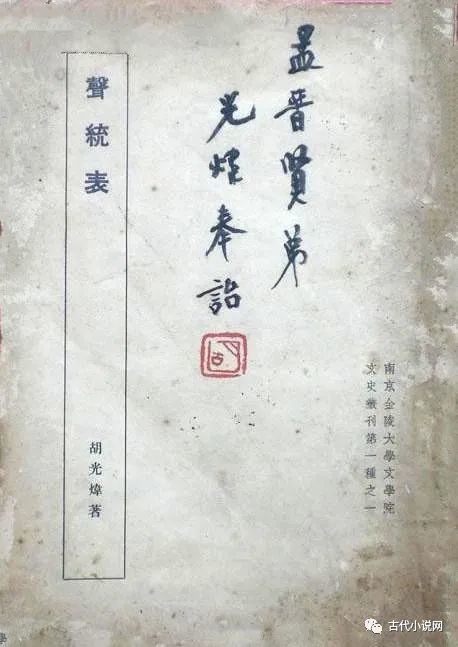 聲統表
胡光煒著
孟晋賢弟
光煒奉詒
南京金陵大學文學院
文史叢刊第一種之一
古代小说网
學